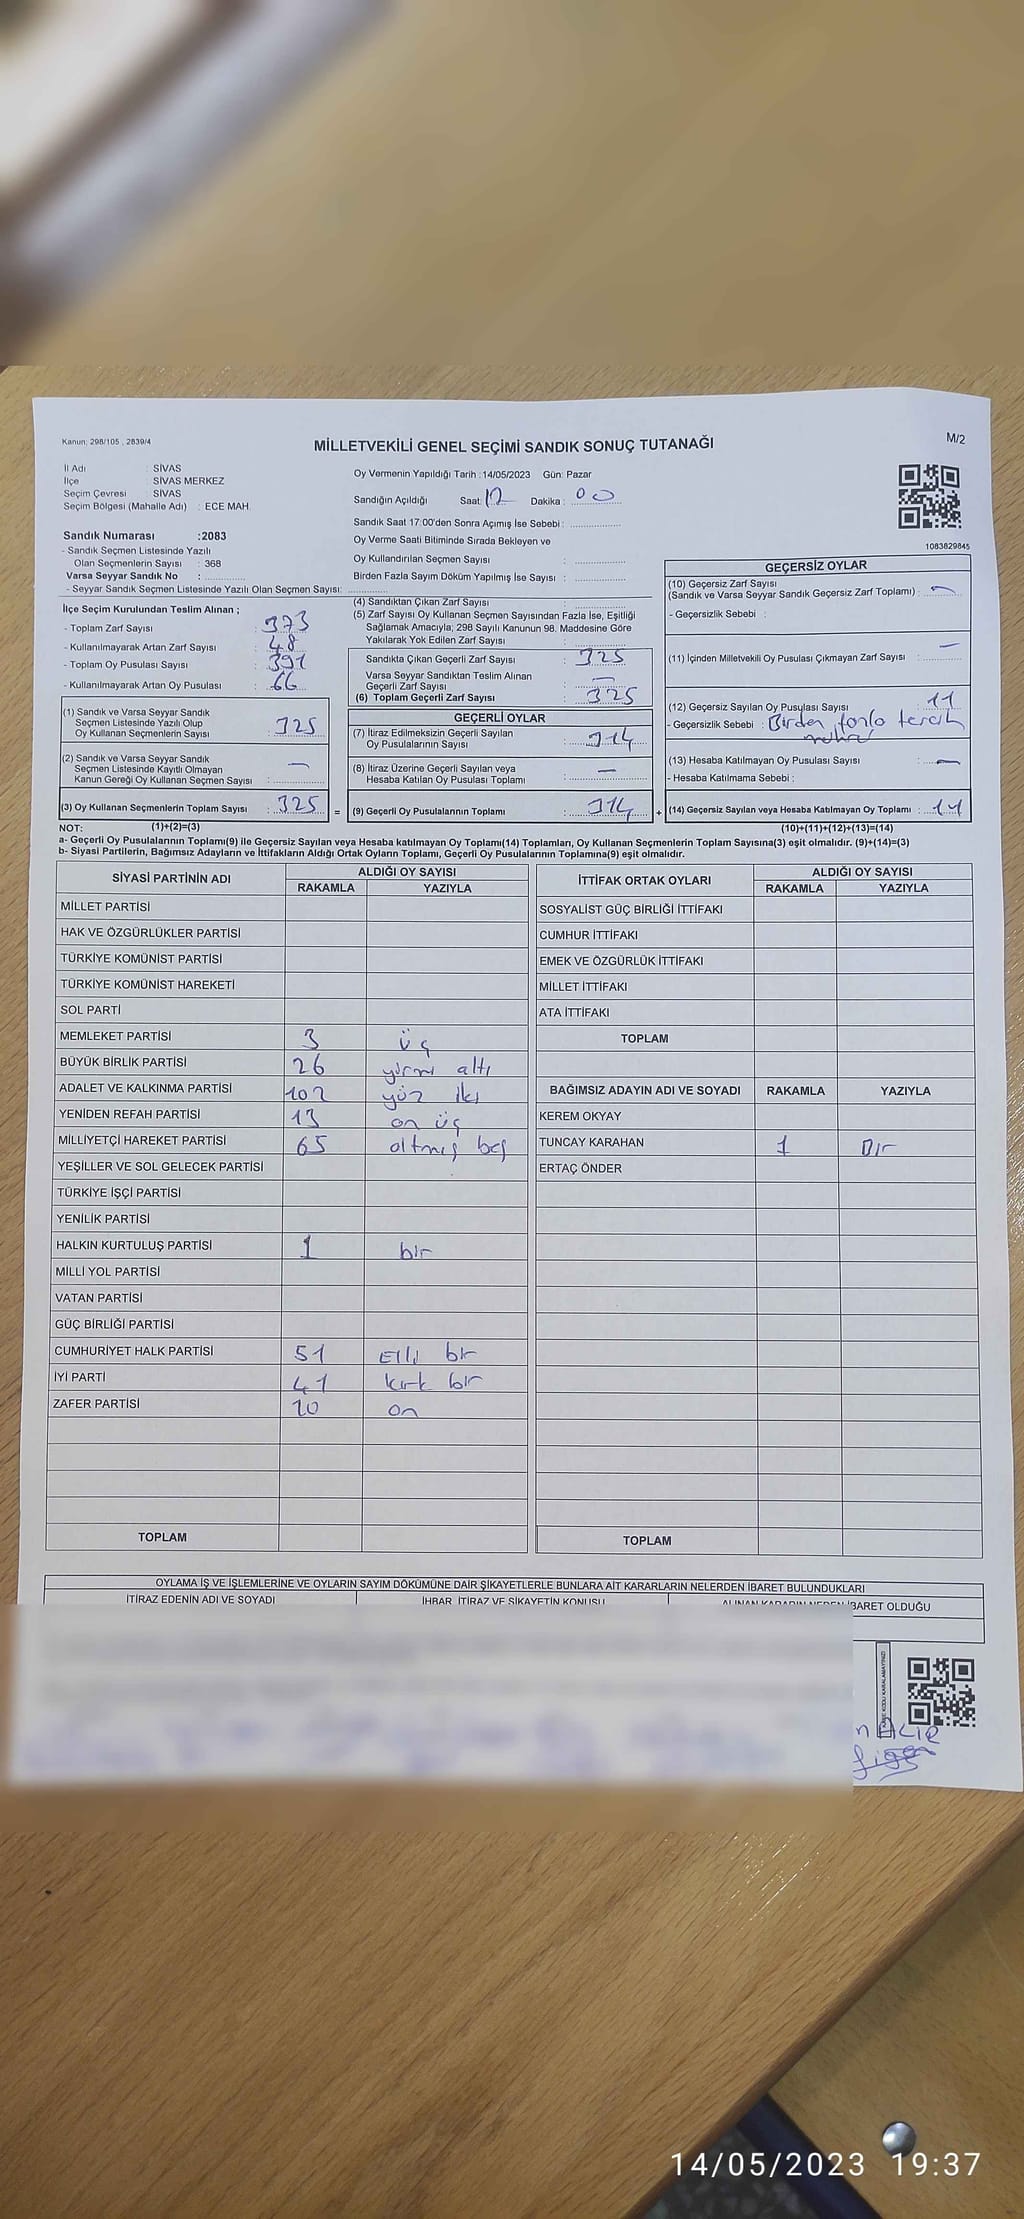 Kanun; 298/105 , 2839/4
MİLLETVEKİLİ GENEL SEÇİMİ SANDIK SONUÇ TUTANAĞI
M/2
İl Adı : SİVAS
İlçe : SİVAS MERKEZ
Seçim Çevresi : SİVAS
Seçim Bölgesi (Mahalle Adı) : ECE MAH.
Sandık Numarası :2083
- Sandık Seçmen Listesinde Yazılı
Olan Seçmenlerin Sayısı : 368
Varsa Seyyar Sandık No :
- Seyyar Sandık Seçmen Listesinde Yazılı Olan Seçmen Sayısı:
Oy Vermenin Yapıldığı Tarih :14/05/2023 Gün: Pazar
Sandığın Açıldığı Saat: Dakika : 00
Sandık Saat 17:00'den Sonra Açılmış İse Sebebi :
Oy Verme Saati Bitiminde Sırada Bekleyen ve
Oy Kullandırılan Seçmen Sayısı :
Birden Fazla Sayım Döküm Yapılmış İse Sayısı :
1083829845
İlçe Seçim Kurulundan Teslim Alınan ;
- Toplam Zarf Sayısı : 373
- Kullanılmayarak Artan Zarf Sayısı : 48
- Toplam Oy Pusulası Sayısı : 391
- Kullanılmayarak Artan Oy Pusulası : 66
(1) Sandık ve Varsa Seyyar Sandık
Seçmen Listesinde Yazılı Olup
Oy Kullanan Seçmenlerin Sayısı : 325
(2) Sandık ve Varsa Seyyar Sandık
Seçmen Listesinde Kayıtlı Olmayan
Kanun Gereği Oy Kullanan Seçmen Sayısı : —
(3) Oy Kullanan Seçmenlerin Toplam Sayısı : 325 =
(1)+(2)=(3)
(4) Sandıktan Çıkan Zarf Sayısı :
(5) Zarf Sayısı Oy Kullanan Seçmen Sayısından Fazla İse, Eşitliği
Sağlamak Amacıyla; 298 Sayılı Kanunun 98. Maddesine Göre
Yakılarak Yok Edilen Zarf Sayısı :
Sandıkta Çıkan Geçerli Zarf Sayısı : 325
Varsa Seyyar Sandıktan Teslim Alınan
Geçerli Zarf Sayısı : —
(6) Toplam Geçerli Zarf Sayısı : 325
GEÇERLİ OYLAR
(7) İtiraz Edilmeksizin Geçerli Sayılan
Oy Pusulalarının Sayısı : 314
(8) İtiraz Üzerine Geçerli Sayılan veya
Hesaba Katılan Oy Pusulası Toplamı : —
(9) Geçerli Oy Pusulalarının Toplamı : 314 +
GEÇERSİZ OYLAR
(10) Geçersiz Zarf Sayısı
(Sandık ve Varsa Seyyar Sandık Geçersiz Zarf Toplamı) : —
- Geçersizlik Sebebi :
(11) İçinden Milletvekili Oy Pusulası Çıkmayan Zarf Sayısı : —
(12) Geçersiz Sayılan Oy Pusulası Sayısı : 11
- Geçersizlik Sebebi : Birden fazla tercih
(13) Hesaba Katılmayan Oy Pusulası Sayısı : —
- Hesaba Katılmama Sebebi :
(14) Geçersiz Sayılan veya Hesaba Katılmayan Oy Toplamı : 11
(10)+(11)+(12)+(13)=(14)
NOT:
a- Geçerli Oy Pusulalarının Toplamı(9) ile Geçersiz Sayılan veya Hesaba katılmayan Oy Toplamı(14) Toplamları, Oy Kullanan Seçmenlerin Toplam Sayısına(3) eşit olmalıdır. (9)+(14)=(3)
b- Siyasi Partilerin, Bağımsız Adayların ve İttifakların Aldığı Ortak Oyların Toplamı, Geçerli Oy Pusulalarının Toplamına(9) eşit olmalıdır.
SİYASİ PARTİNİN ADI ALDIĞI OY SAYISI
RAKAMLA YAZIYLA
MİLLET PARTİSİ
HAK VE ÖZGÜRLÜKLER PARTİSİ
TÜRKİYE KOMÜNİST PARTİSİ
TÜRKİYE KOMÜNİST HAREKETİ
SOL PARTİ
MEMLEKET PARTİSİ 3 üç
BÜYÜK BİRLİK PARTİSİ 26 yirmi altı
ADALET VE KALKINMA PARTİSİ 102 yüz iki
YENİDEN REFAH PARTİSİ 13 on üç
MİLLİYETÇİ HAREKET PARTİSİ 65 altmış beş
YEŞİLLER VE SOL GELECEK PARTİSİ
TÜRKİYE İŞÇİ PARTİSİ
YENİLİK PARTİSİ
HALKIN KURTULUŞ PARTİSİ 1 bir
MİLLİ YOL PARTİSİ
VATAN PARTİSİ
GÜÇ BİRLİĞİ PARTİSİ
CUMHURİYET HALK PARTİSİ 51 Elli bir
İYİ PARTİ 41 kırk bir
ZAFER PARTİSİ 10 on
TOPLAM
İTTİFAK ORTAK OYLARI ALDIĞI OY SAYISI
RAKAMLA YAZIYLA
SOSYALİST GÜÇ BİRLİĞİ İTTİFAKI
CUMHUR İTTİFAKI
EMEK VE ÖZGÜRLÜK İTTİFAKI
MİLLET İTTİFAKI
ATA İTTİFAKI
TOPLAM
BAĞIMSIZ ADAYIN ADI VE SOYADI RAKAMLA YAZIYLA
KEREM OKYAY
TUNCAY KARAHAN 1 Bir
ERTAÇ ÖNDER
TOPLAM
OYLAMA İŞ VE İŞLEMLERİNE VE OYLARIN SAYIM DÖKÜMÜNE DAİR ŞİKAYETLERLE BUNLARA AİT KARARLARIN NELERDEN İBARET BULUNDUKLARI
İTİRAZ EDENİN ADI VE SOYADI İHBAR, İTİRAZ VE ŞİKAYETİN KONUSU ALINAN KARARIN NEDEN İBARET OLDUĞU
14/05/2023 19:37